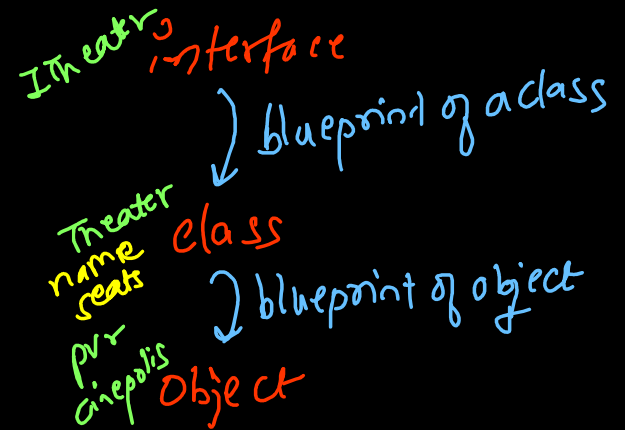 ITheater interface
blueprint of a class
Theater class
name
seats
blueprint of object
pvr
cinepolis object